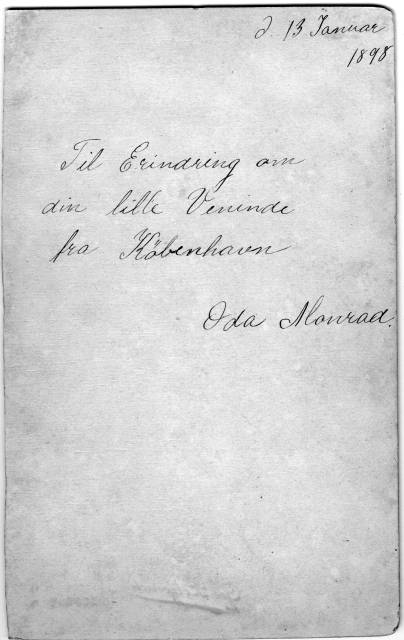 d. 13 Januar
1898
Til Erindring om
din lille Veninde
fra København
Oda Monrad.